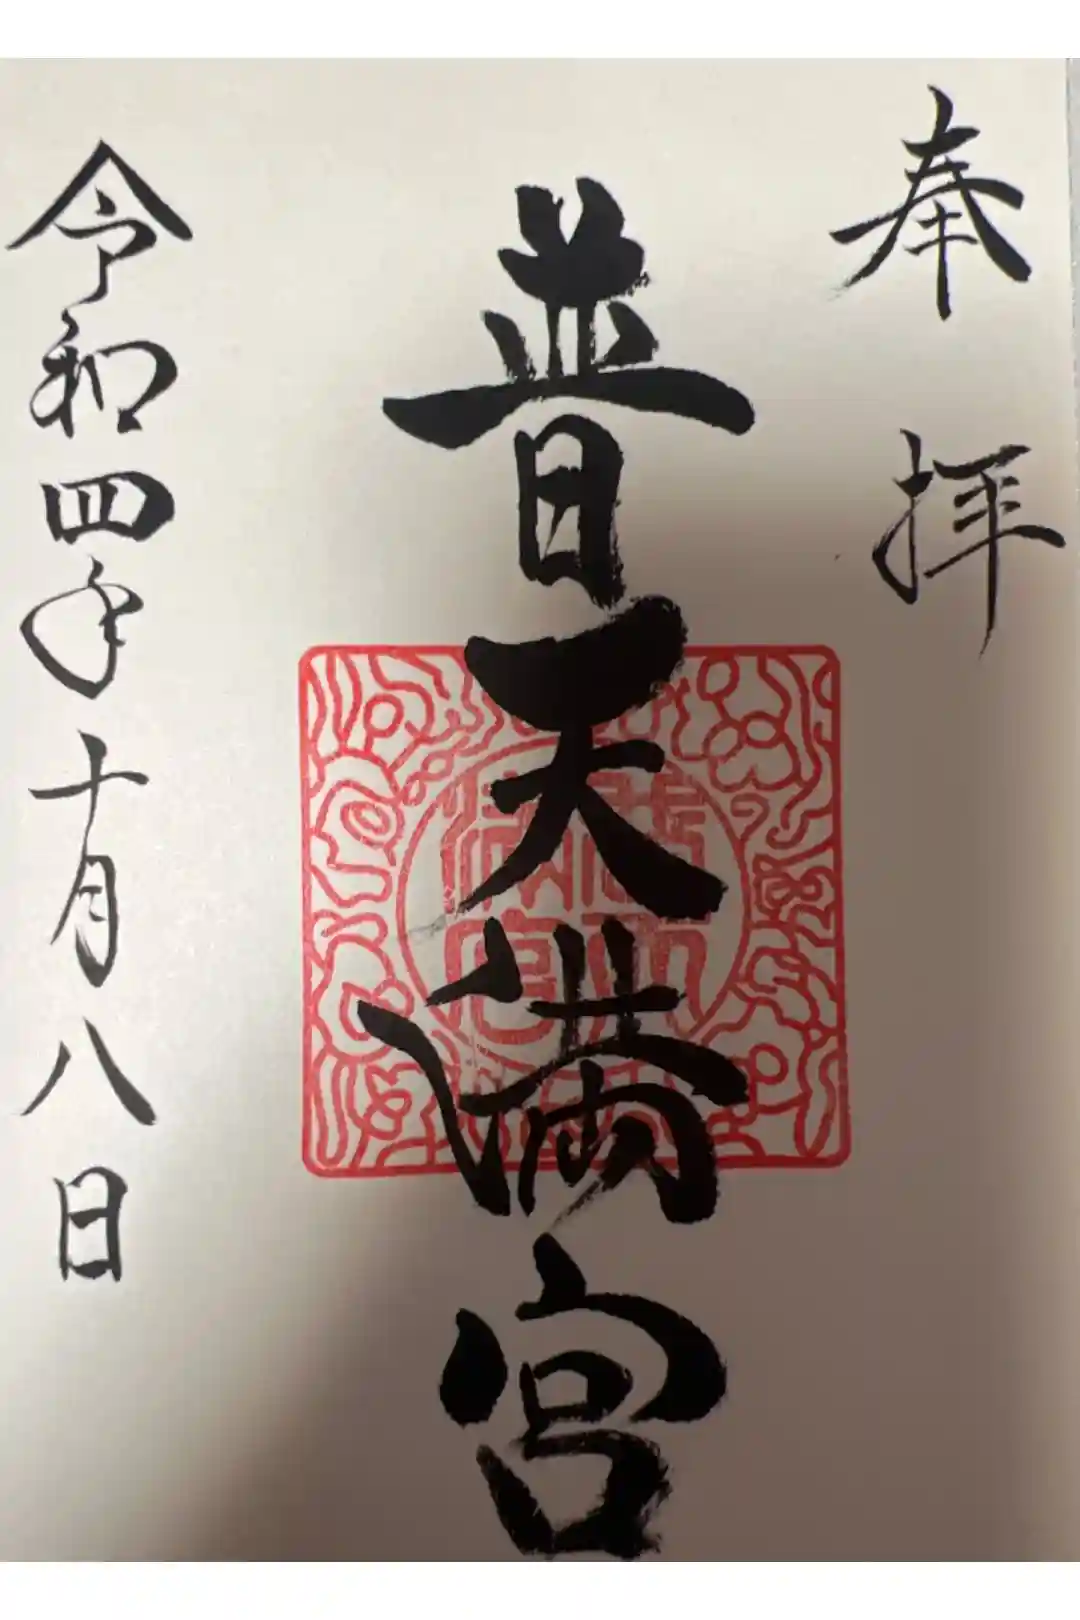 奉拝
普天満宮
令和四年十月八日